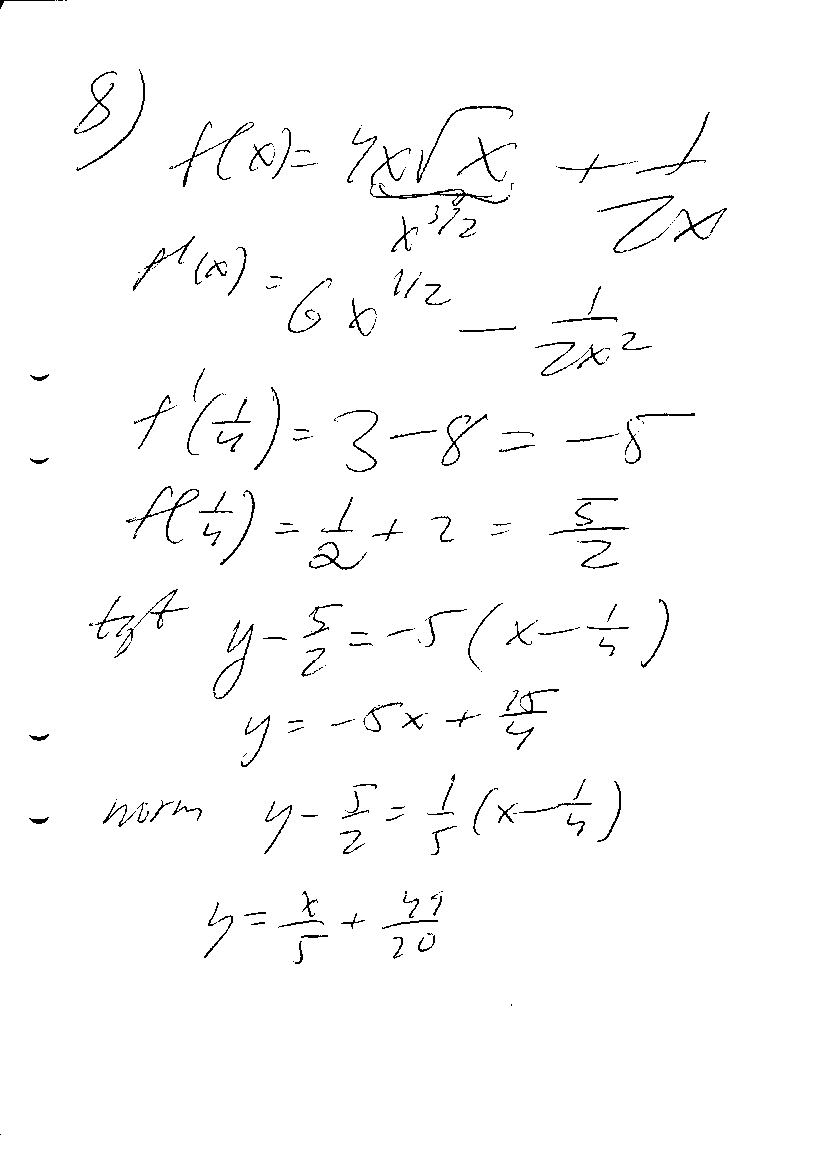 8)
f(x) = 4x√x + 1/2x
x^3/2
f'(x) = 6x^1/2 - 1/2x^2
f'(1/4) = 3 - 8 = -5
f(1/4) = 1/2 + 2 = 5/2
tgt y - 5/2 = -5(x - 1/4)
y = -5x + 15/4
norm y - 5/2 = 1/5(x - 1/4)
y = x/5 + 49/20